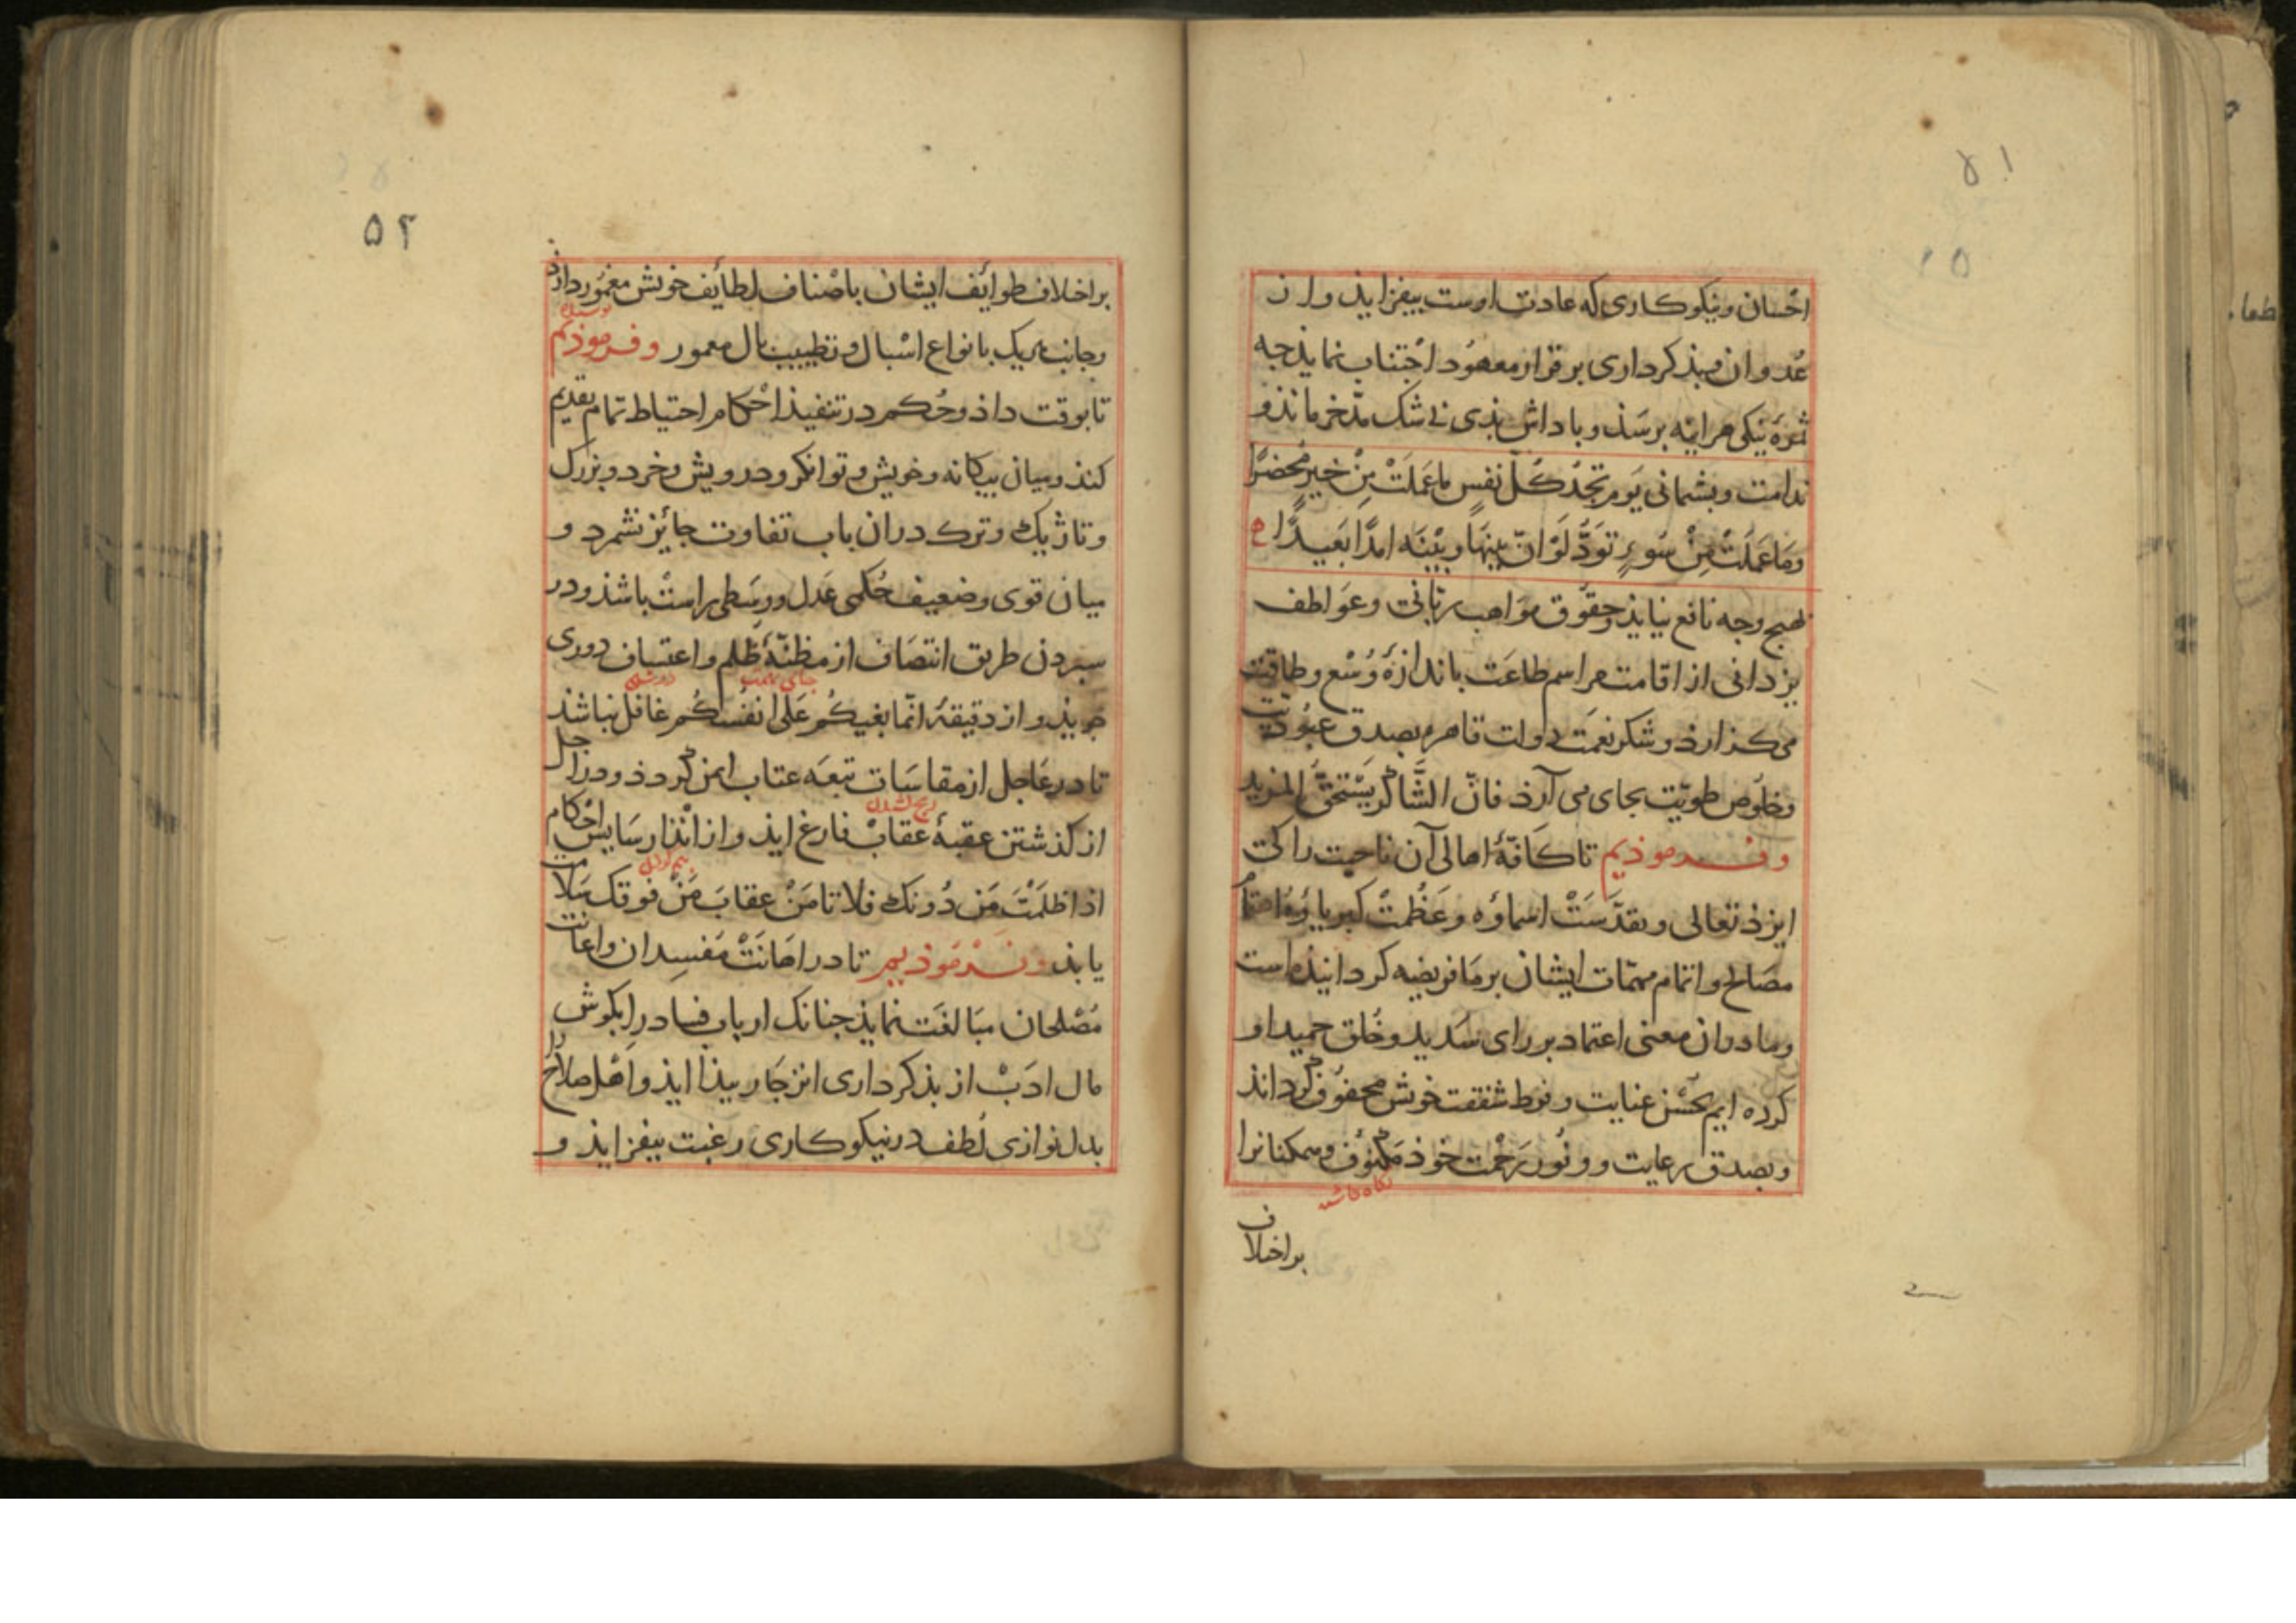 ۵۱
احْسان و نیکوکاری که عادت اوست بیفزایذ و از
عُدوان و بذکرداری بر قرار معهُود اجْتناب نمایذ جه
ثمرَهٔ نیکی هراینه برسَذ و باداش بذی بی شک مدّخر ماند و
ندامت و بشمانی یَوم تجدُ کُلّ نفسٍ ما عَملَتْ مِنْ خیرٍ مُحضرًا
وَمَا عَملَتْ مِنْ سُوءٍ تَوَدُّ لَوْ انّ بینهَا وبیْنَه امدًا بَعیدًا
بهیج وجه نافع نیایذ و حقُوق موَاهب ربّانی و عوَاطف
یزدانی از اقامت مراسم طاعَت باندازهٔ وُسْع و طاقت
می کزارذ و شکر نعمَت دولت قاهره بصدق عبُودیّت
و خلُوص طویّت بجای می آرذ فانّ الشَّاکر یَسْتحقُّ المزید
و فرموذیم تا کافّهٔ اهالی آن ناحیت را کی
ایزذ تعالی و تقدّسَتْ اسماؤه و عَظُمتْ کبریاؤه اهتمام
مصَالح و اتمام مهمّات ایشان بر ما فریضه کردانیذه است
و ما دران معنی اعتماد بر رای سَدید و خُلق حمید او
کرده ایم بحُسْن عنایت و فرط شفقت خوش محفُوف کرداند
و بصدق رعایت و وفُور رَحْمت خوذ مکنُوف و سمکنانرا
نکاه داشته
بر اختلاف
۵۲
بر اختلاف طوائف ایشان باصْناف لطائف خویش مغمُور دارذ
و جانب هر یک بانواع اسْبال و تطییب بال معمور و فرموذیم
تا بوقت داذ و حُکم در تنفیذ احْکام احتیاط تمام تقدیم
کنذ و میان بیکانه و خویش و توانکر و درویش و خرد و بزرک
و تاژیک و ترک دران باب تفاوت جایز نشمرد و
میان قوی و ضعیف حُکمی عَدل و وسَطی راسْت باشذ و در
سبردن طریق انتصَاف از مظنّهٔ ظلم و اعتساف دوری
جویذ و از دقیقهٔ انّما بغیکُم عَلی انفسکُم غافل نباشذ
تا در عَاجل از مقاسَات تبعَه عتاب ایمن کردذ و در اجل
از کذشتن عقبهٔ عقابْ فارغ ایذ و از انْذار سَایس احْکام
اذا ظلَمْتَ مَن دُونک فلا تامَنْ عقابَ مَنْ فوقک سَلامت
یابذ و فرموذیم تا در اهَانَتْ مفسِدان و اعانت
مُصْلحان مبَالغَت نمایذ جنانک ارباب فساد را بکوش
مال ادَبْ از بذکرداری انزجَار بیذا ایذ و اهْل صلاح را
بدل نوازی لُطف در نیکوکاری رغبت بیفزایذ و